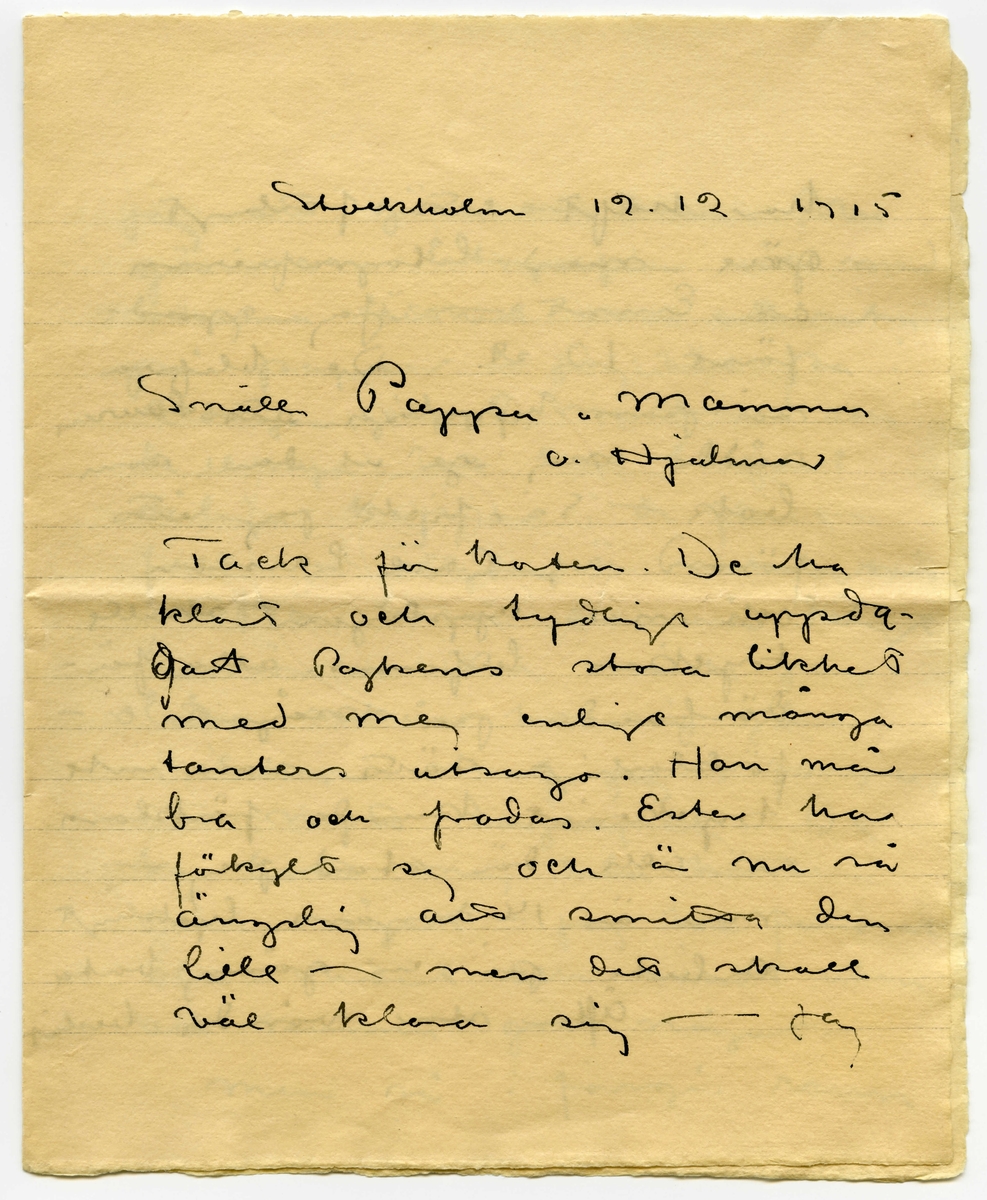 Stockholm 12.12 1915
Snälle Pappa o Mamma
o. Hjalmar
Tack för korten. De ha
klart och tydligt uppda-
gat Pojkens stora likhet
med mej enligt många
tanters utsago. Han mår
bra och frodas. Ester har
förkylt sej och är nu så
ängslig att smitta den
lille — men det skall
väl klara sig — Jag